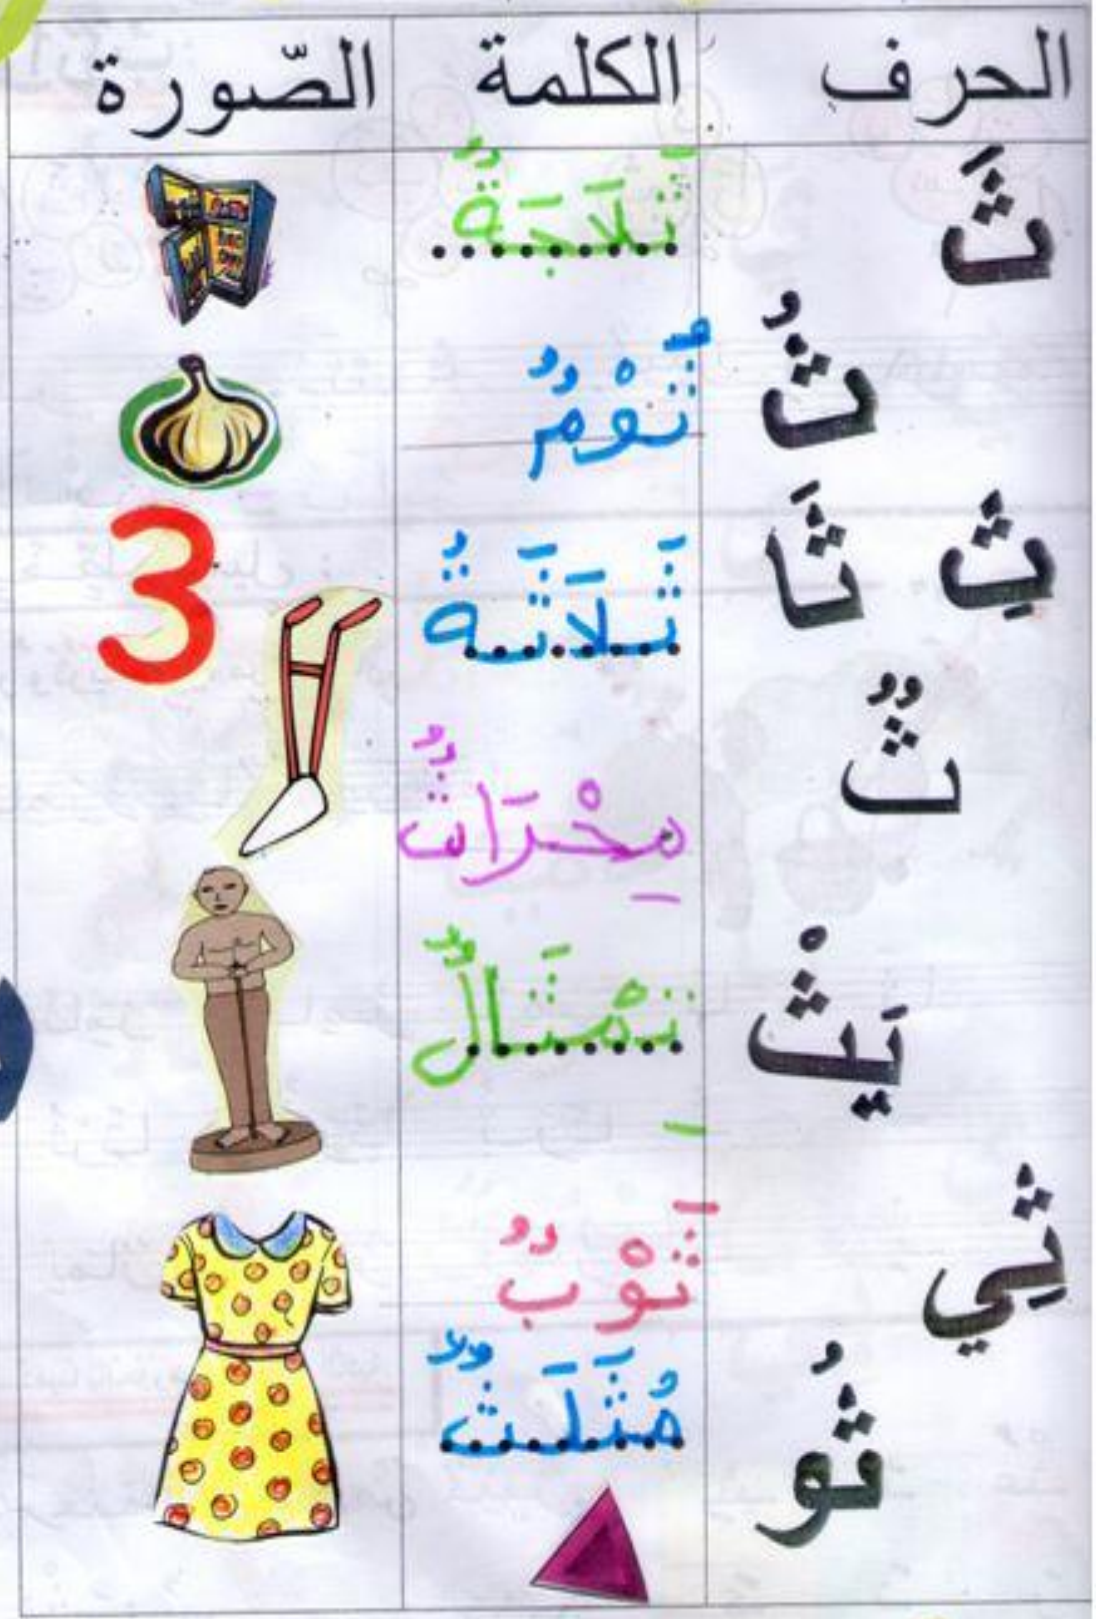 الحرف الكلمة الصّورة
ثَ ثَلَاجَةٌ
ثُ ثَوْمٌ
ثِ ثَا ثَلَاثَةُ 3
ثٌ مِحْرَاثٌ
يَثْ تِمْثَالٌ
ثِي ثَوْبٌ
ثُو مُثَلَثٌ